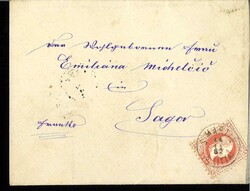 Der Wohlgebornen Frau
Emiliana Michelčič
in
Sagor
franko